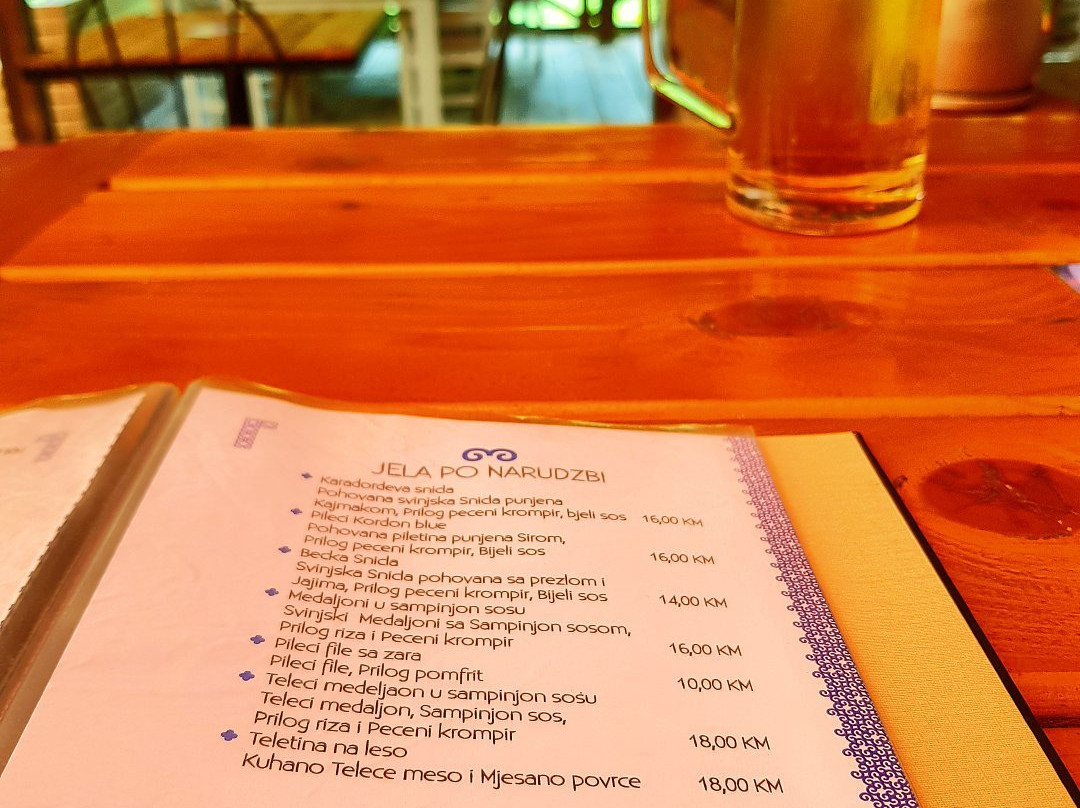 JELA PO NARUDZBI
Karadordeva snicla
Pohovana svinjska Snicla punjena
Kajmakom, Prilog peceni krompir, bjeli sos 16,00 KM
Pileci Kordon blue
Pohovana piletina punjena Sirom,
Prilog peceni krompir, Bijeli sos 16,00 KM
Becka Snicla
Svinjska Snicla pohovana sa prezlom i
Jajima, Prilog peceni krompir, Bijeli sos 14,00 KM
Medaljoni u sampinjon sosu
Svinjski Medaljoni sa Sampinjon sosom,
Prilog riza i Peceni krompir 16,00 KM
Pileci file sa zara
Pileci file, Prilog pomfrit 10,00 KM
Teleci medeljaon u sampinjon sosu
Teleci medaljon, Sampinjon sos,
Prilog riza i Peceni krompir 18,00 KM
Teletina na leso
Kuhano Telece meso i Mjesano povrce 18,00 KM